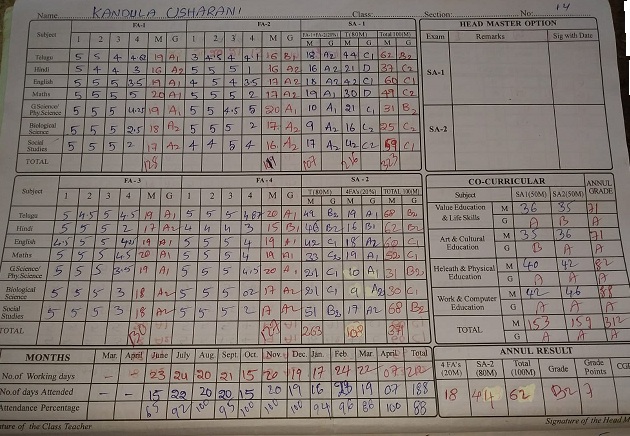 Name KANDULA USHARANI Class: Section: No: 14
FA-1 FA-2 SA-1
Subject 1 2 3 4 M G 1 2 3 4 M G FA-1+FA-2(20%) T(80M) Total 100(M)
M G M G M G
Telugu 5 5 4 19 A1 3 4.5 4 16 B1 18 A2 44 C1 62 B2
Hindi 5 4 4 3 16 A2 5 5 5 1 16 A2 16 A2 21 D 37 C2
English 5 5 5 3.5 19 A1 4 5 4 3.5 17 A2 18 A2 42 C1 60 C1
Maths 5 5 5 5 20 A1 5 5 5 2 17 A2 19 A1 30 D 49 C2
G.Science/ Phy.Science 5 5 5 4.25 19 A1 5 5 4.5 5 20 A1 10 A1 21 C1 31 B2
Biological Science 5 5 5 2.5 18 A2 5 5 5 2 17 A2 9 A2 16 C2 25 C2
Social Studies 5 5 5 2 17 A2 4 4 5 4 16 A2 17 A2 42 C2 59 C1
TOTAL 107 216 323
HEAD MASTER OPTION
Exam Remarks Sig with Date
SA-1
SA-2
FA-3 FA-4 SA-2
Subject 1 2 3 4 M G 1 2 3 4 M G T(80M) 4FA's(20%) TOTAL 100(M)
M G M G M G
Telugu 5 4.5 5 4.5 19 A1 5 5 5 4.87 20 A1 49 B2 19 A1 68 B2
Hindi 5 5 5 2 17 A2 4 4 4 3 15 B1 46 B2 16 B1 62 B2
English 4.5 5 5 4.5 19 A1 5 5 5 4 19 A1 42 C1 18 A2 60 C1
Maths 5 5 5 4.5 20 A1 5 5 5 4 19 A1 33 C2 19 A1 52 C1
G.Science/ Phy.Science 5 5 5 3.5 19 A1 5 5 5 4.5 20 A1 21 C1 10 A1 31 B2
Biological Science 5 5 5 3 18 A2 5 5 5 02 17 A2 21 C1 9 A2 30 C1
Social Studies 5 5 5 3 18 A2 5 5 5 2 17 A2 51 B2 17 A2 68 B2
TOTAL 130 263 108
CO-CURRICULAR
Subject SA1(50M) SA2(50M) ANNUL GRADE
Value Education & Life Skills M 36 35 71
G A B A
Art & Cultural Education M 35 36 71
G B A A
Heleath & Physical Education M 40 42 82
G A A A
Work & Computer Education M 42 46 88
G A A A
TOTAL M 153 159 312
G A A A
MONTHS Mar. April June July Aug. Sept. Oct. Nov. Dec. Jan. Feb. Mar. April Total
No.of Working days - - 23 24 20 21 15 20 19 17 24 22 07 212
No.of days Attended - - 15 22 20 20 15 20 19 16 19 07 188
Attendance Percentage 65 92 100 95 100 100 100 94 96 86 100 88
ANNUL RESULT
4 FA's (20M) SA-2 (80M) Total (100M) Grade Grade Points
18 44 62 B2 7
Signature of the Class Teacher Signature of the Head M